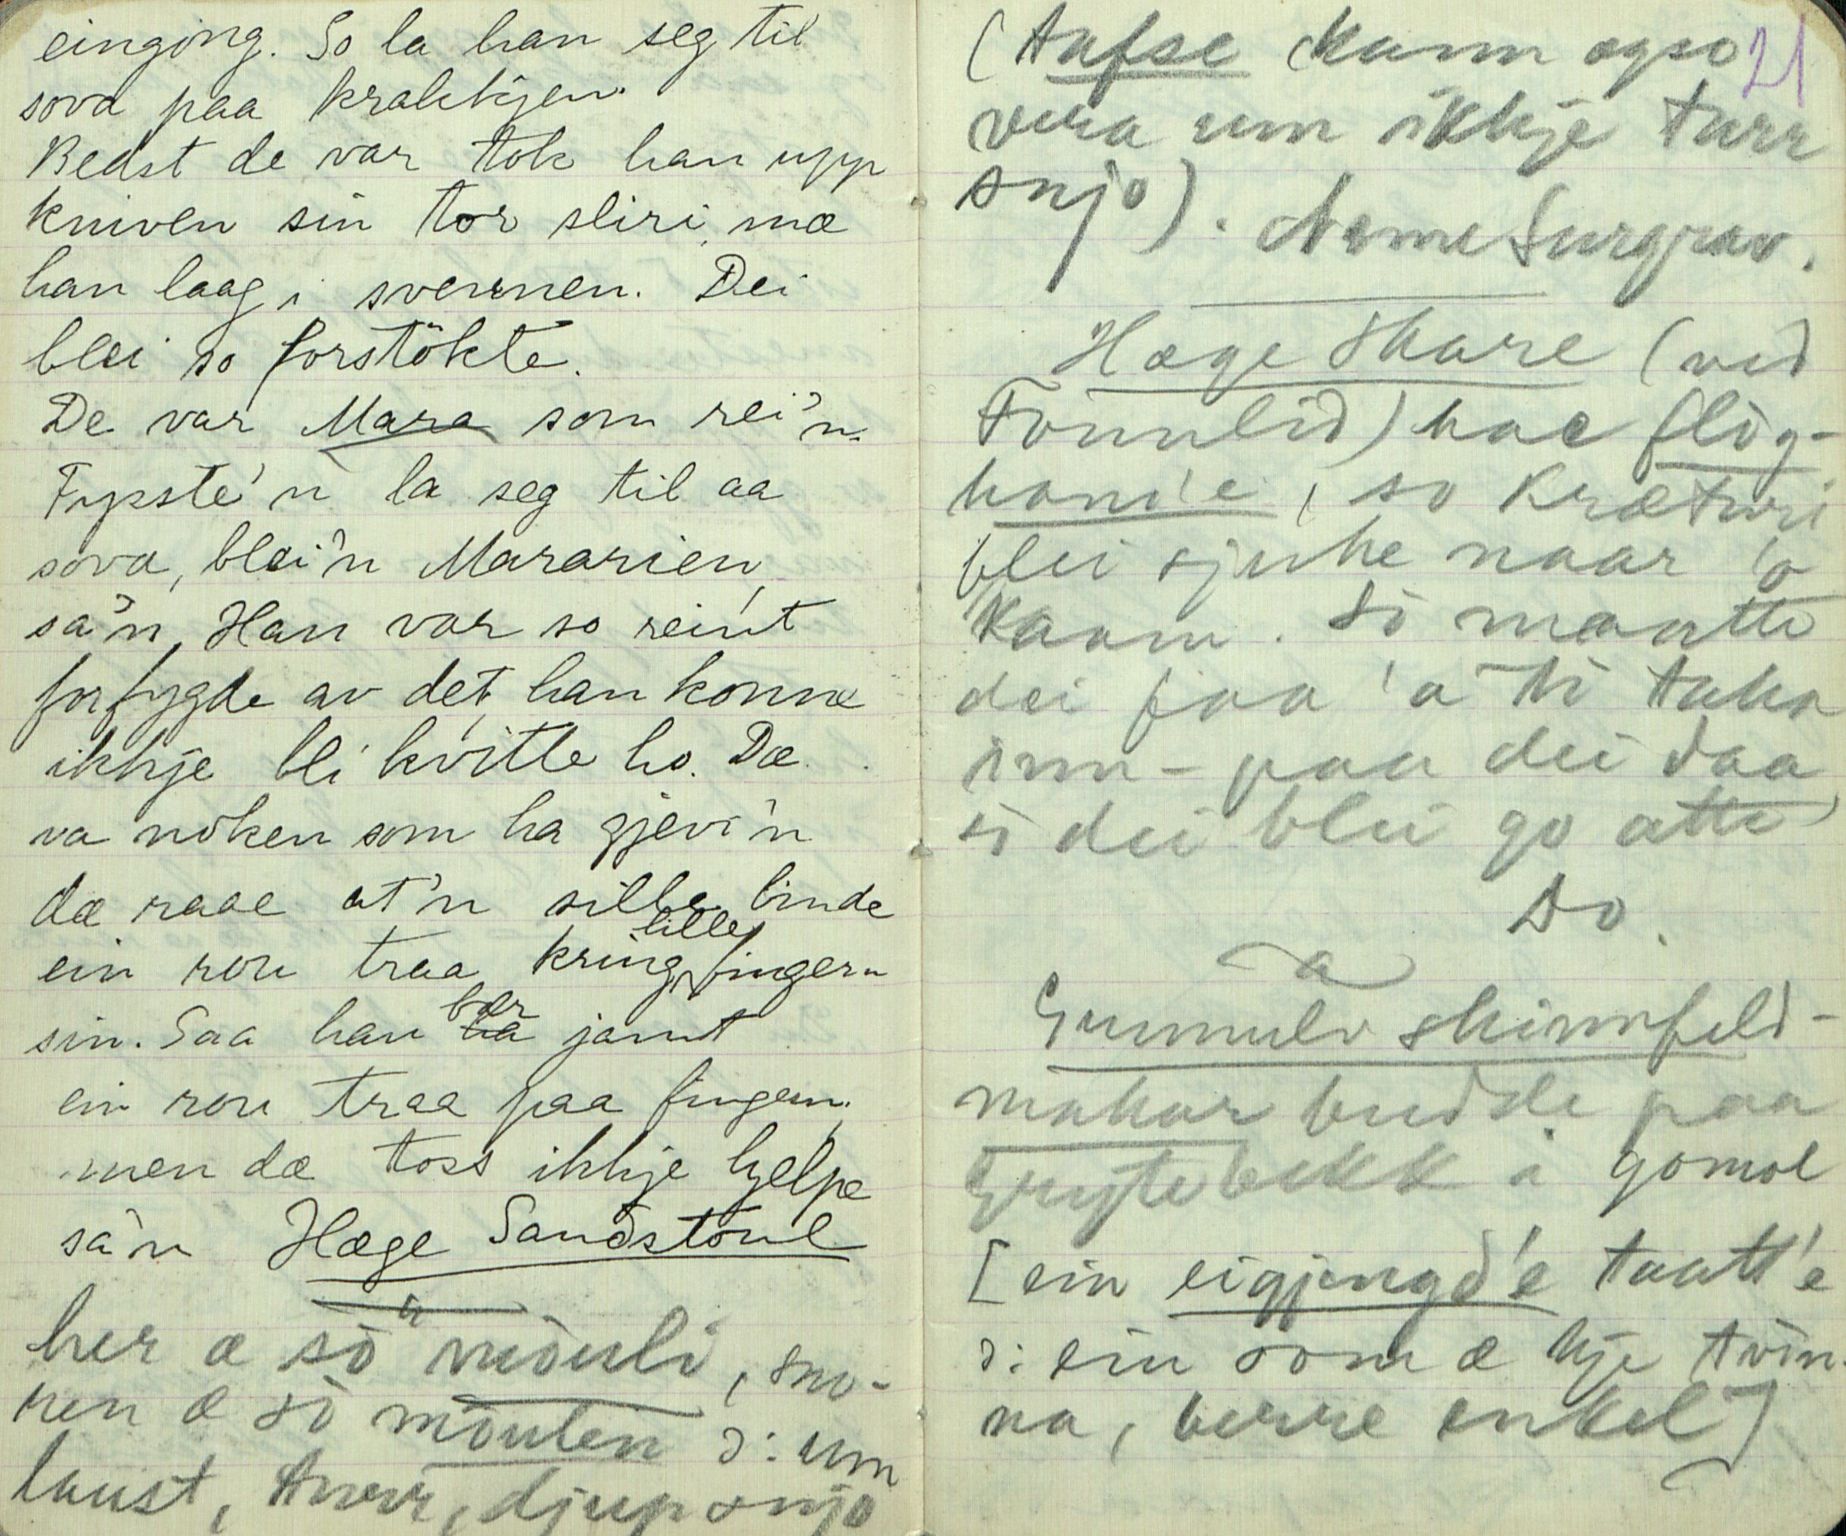 eingong. So la han seg til
sova paa krakkjen.
Bedst de var tok han upp
kniven sin tor sliri, mæ
han laag i svevnen. Dei
blei so forstökte.
De var Mara som rei'n.
Fysste'n la seg til aa
sova, blei'n Mararien,
sa'n. Han var so reint
forfygde av det, han konne
ikkje bli kvitte ho. Dæ
va nöken som ha gjevi'n
dæ raae at'n sille binde
ein rou traa kring lille fingern
sin. Saa han bar jamt
ein rou traa paa fingern,
men dæ toss ikkje hjelpe
sa'n Hæge Sandstöul
her æ so möuli, sno-
ren æ so möulen ɔ: um
laust, turr, djup snjo
21
(Aufse kann ogso
vera um ikkje turr
snjo). Aamne Surgrav.
Hæge Skare (ved
Fönnlid) hae flog-
hond'e, so kræturi
blei sjuke naar 'o
kaam. So maatte
dei faa 'a ti taka
inn-paa dei daa
so dei blei go atte
Do.
a
Gunnulv skinnfeld-
makar budde paa
Grytebekk i gomol
[ein eigjengd'e taatt'e
ɔ: ein som æ kje tvin-
na, berre enkel]